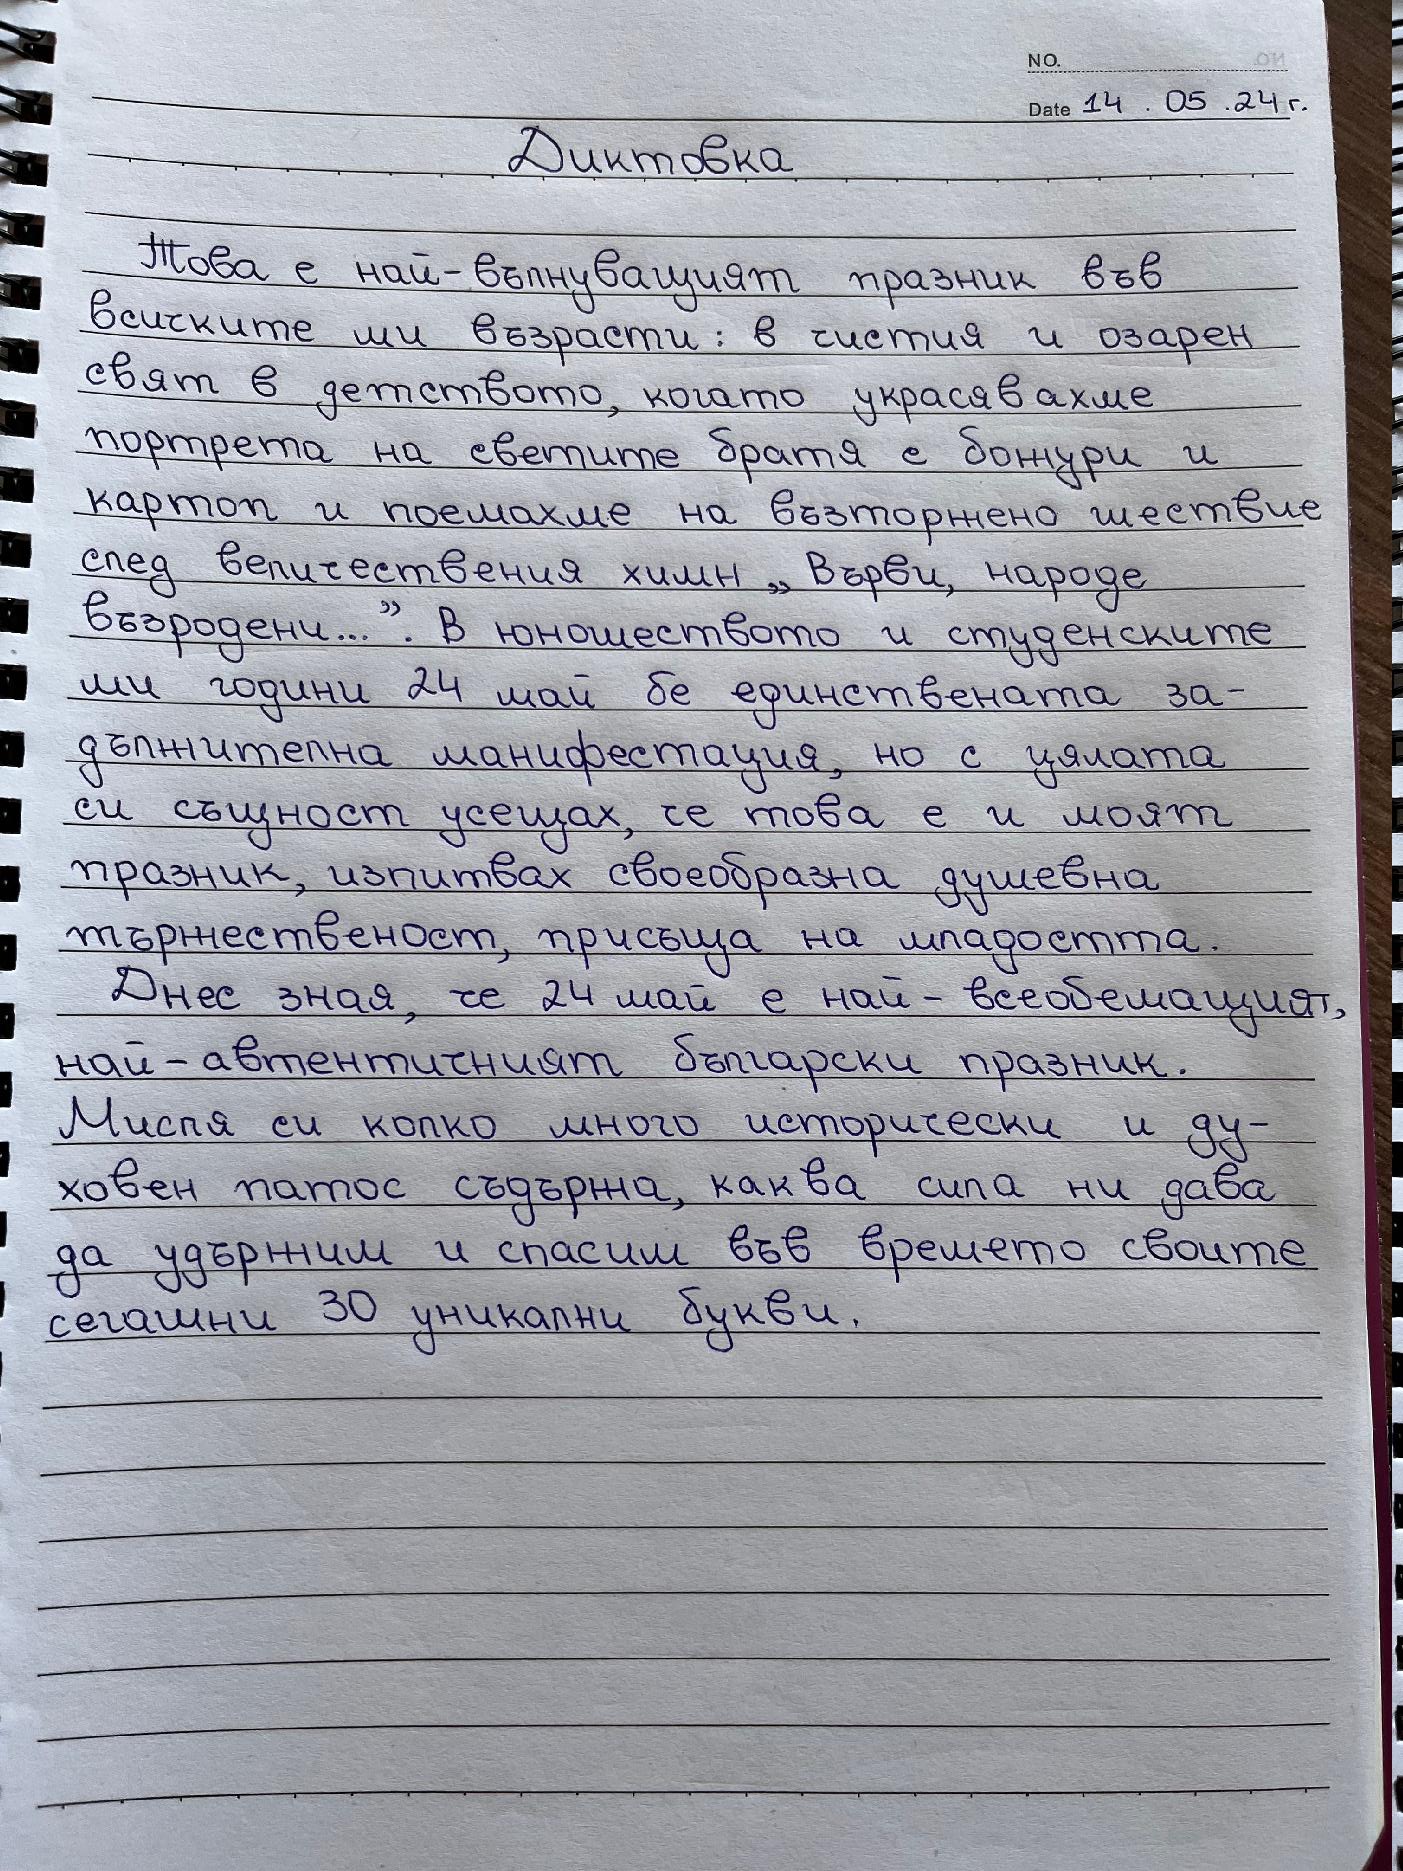 NO.
Date 14.05.24г.
Диктовка
Това е най-вълнуващият празник във
всичките ми възрасти: в чистия и озарен
свят в детството, когато украсявахме
портрета на светите братя с божури и
картоп и поемахме на възторжено шествие
след величествения химн „Върви, народе
възродени...”. В юношеството и студенските
ми години 24 май бе единствената за-
дължителна манифестация, но с цялата
си същност усещах, че това е и моят
празник, изпитвах своеобразна душевна
тържественост, присъща на младостта.
Днес зная, че 24 май е най-всеобемащият,
най-автентичният български празник.
Мисля си колко много исторически и ду-
ховен патос съдържа, каква сила ни дава
да удържим и спасим във времето своите
сегашни 30 уникални букви.